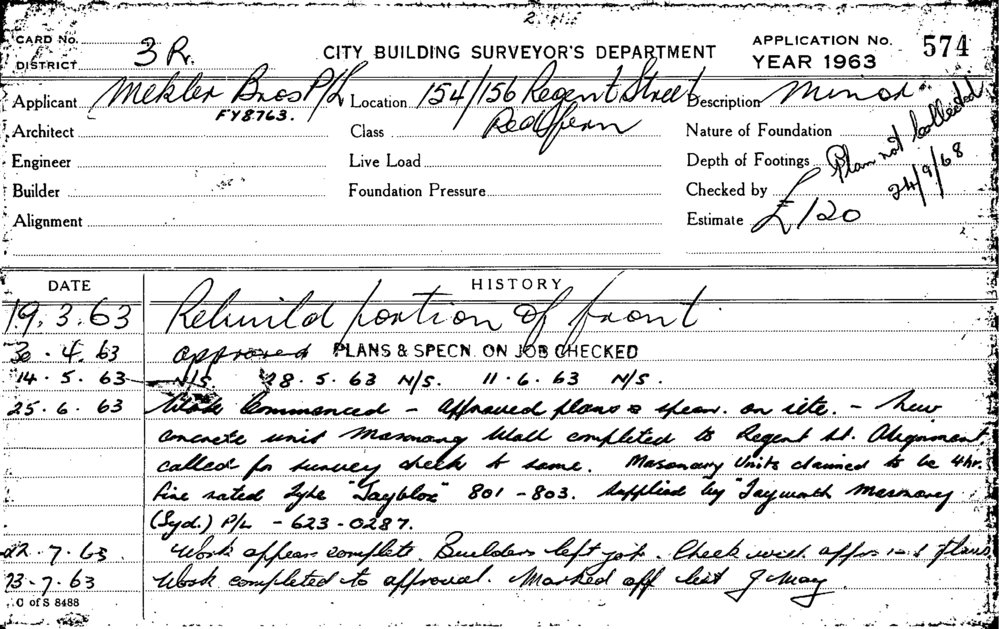 CARD No.
DISTRICT 3 R.
CITY BUILDING SURVEYOR'S DEPARTMENT
APPLICATION No. 574
YEAR 1963
Applicant Mekler Bros P/L Location 154/156 Regent Street Description Minor
FY8763.
Architect Class Redfern Nature of Foundation
Engineer Live Load Depth of Footings
Plan not Collected
24/9/68
Builder Foundation Pressure Checked by
Alignment Estimate £120
DATE HISTORY
19.3.63 Rebuild portion of front.
30.4.63 approved PLANS & SPECN. ON JOB CHECKED
14.5.63 N/S. 28.5.63 N/S. 11.6.63 N/S.
25.6.63 Work Commenced - approved plans & specn. on site. - New
concrete unit Masonary Wall completed to Regent St. Alignment,
called for survey check to same. Masonary Units claimed to be 4hr.
fire rated Type "Jayblox" 801-803. Supplied by "Jayworth Masonary
(Syd.) P/L - 623-0287.
22.7.63 Work appears complete. Builders left job. Check with plans
23.7.63 Work completed to approval. Marked off list
C of S 8488